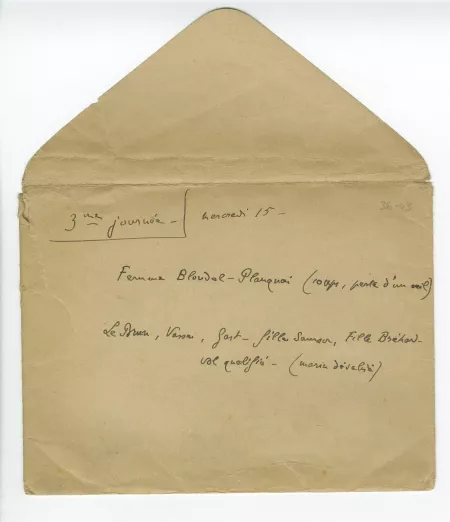 3me journée - mercredi 15 -
36-43
Femme Blondel-Planquai (coups, perte d'un œil)
Le Brun, Vasson, Gast - fille Samson, Fille Bréhard -
vol qualifié - (marin dévalisé)